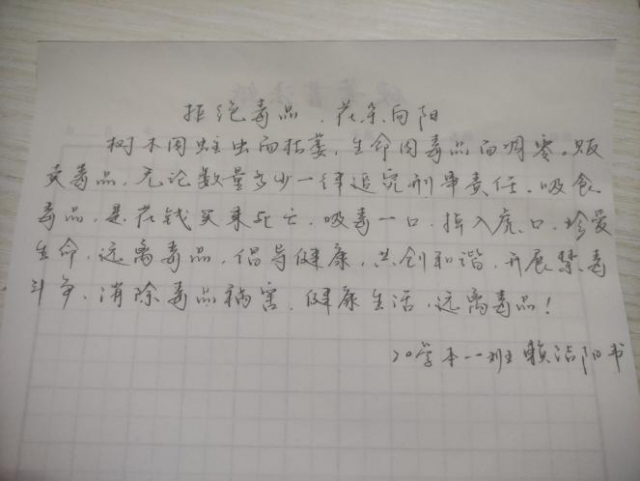 拒绝毒品，花朵向阳
树木因蛀虫而枯萎，生命因毒品而凋零。贩
卖毒品，无论数量多少一律追究刑事责任，吸食
毒品，是花钱买来死亡，吸毒一口，掉入虎口，珍爱
生命，远离毒品，倡导健康，共创和谐，开展禁毒
斗争，消除毒品祸害，健康生活，远离毒品！
20学本一班 赖洁阳书